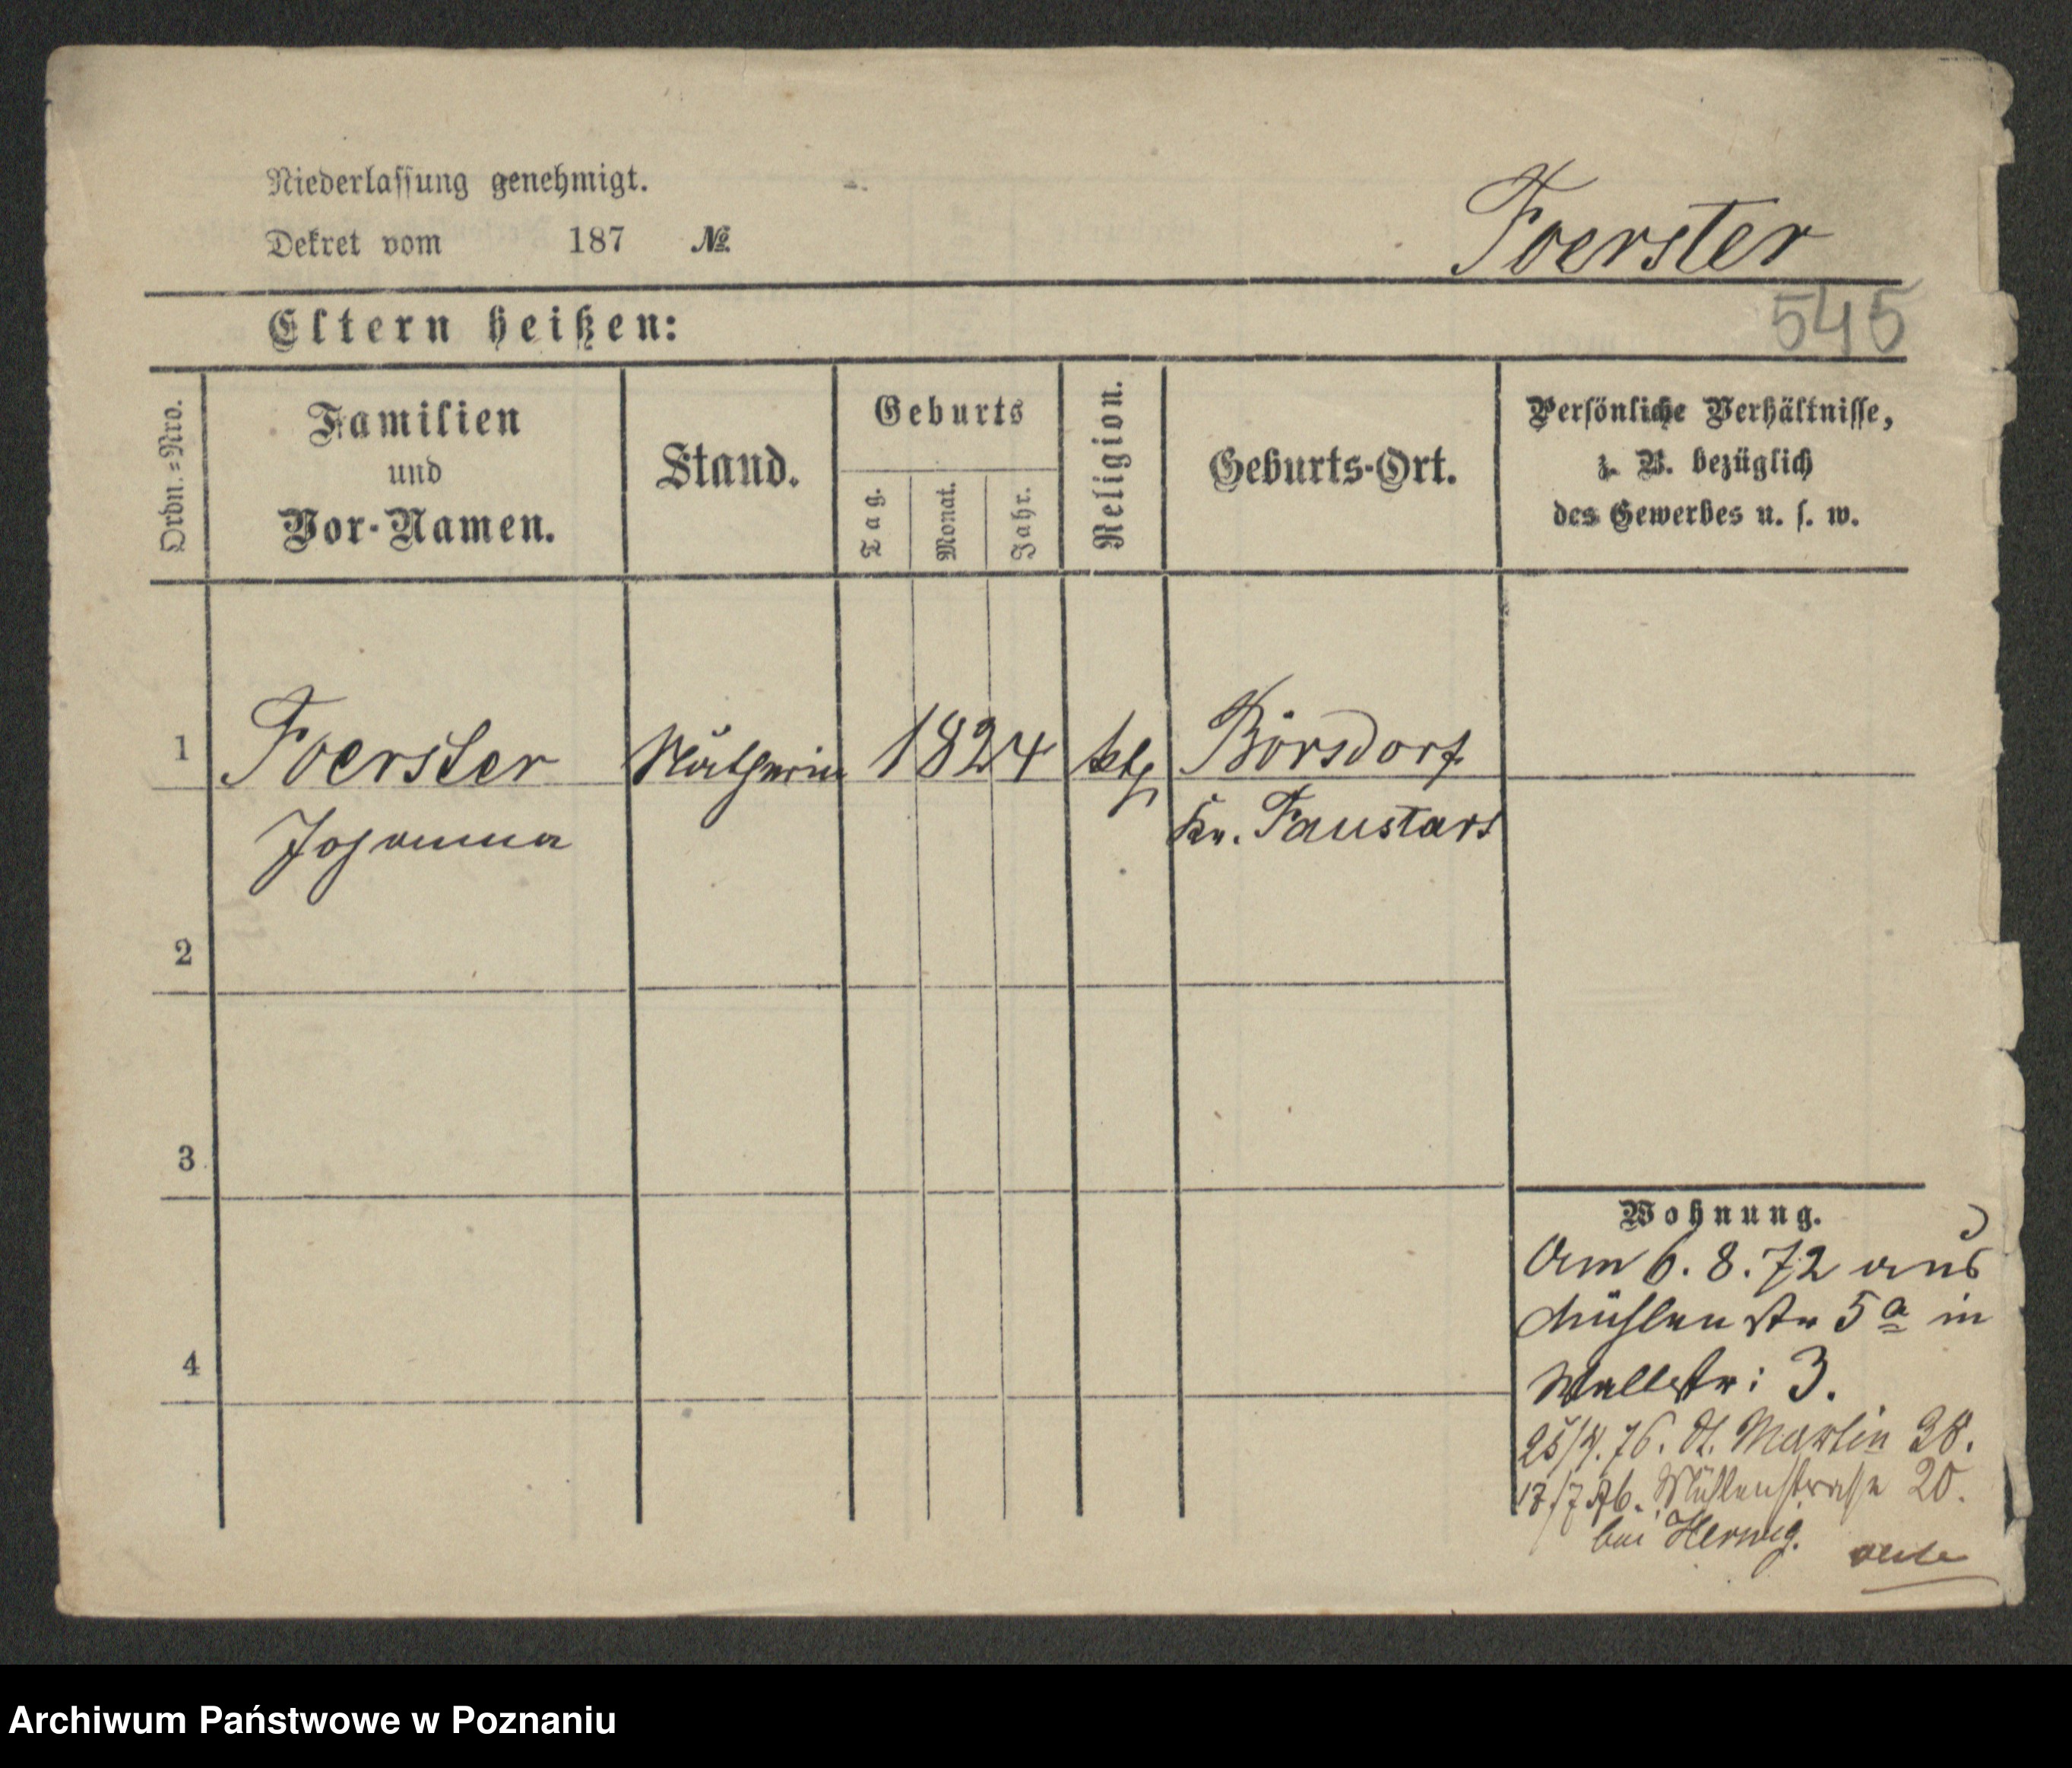 Niederlassung genehmigt.
Dekret vom 187 №
Foerster
545
Eltern heißen:
Ordn.-Nro.
Familien
und
Vor-Namen.
Stand.
Geburts
Tag.
Monat.
Jahr.
Religion.
Geburts-Ort.
Persönliche Verhältnisse,
z. B. bezüglich
des Gewerbes u. s. w.
1 Foerster Näherin 1824 ktl Börsdorf
Johanna Kr. Faustadt
2
3
4
Wohnung.
Am 6. 8. 72 aus
Mühlenstr 5a in
Wallstr: 3.
25/4. 76. St. Martin 28.
13/7 76. Mühlenstraße 20.
bei Herwig.